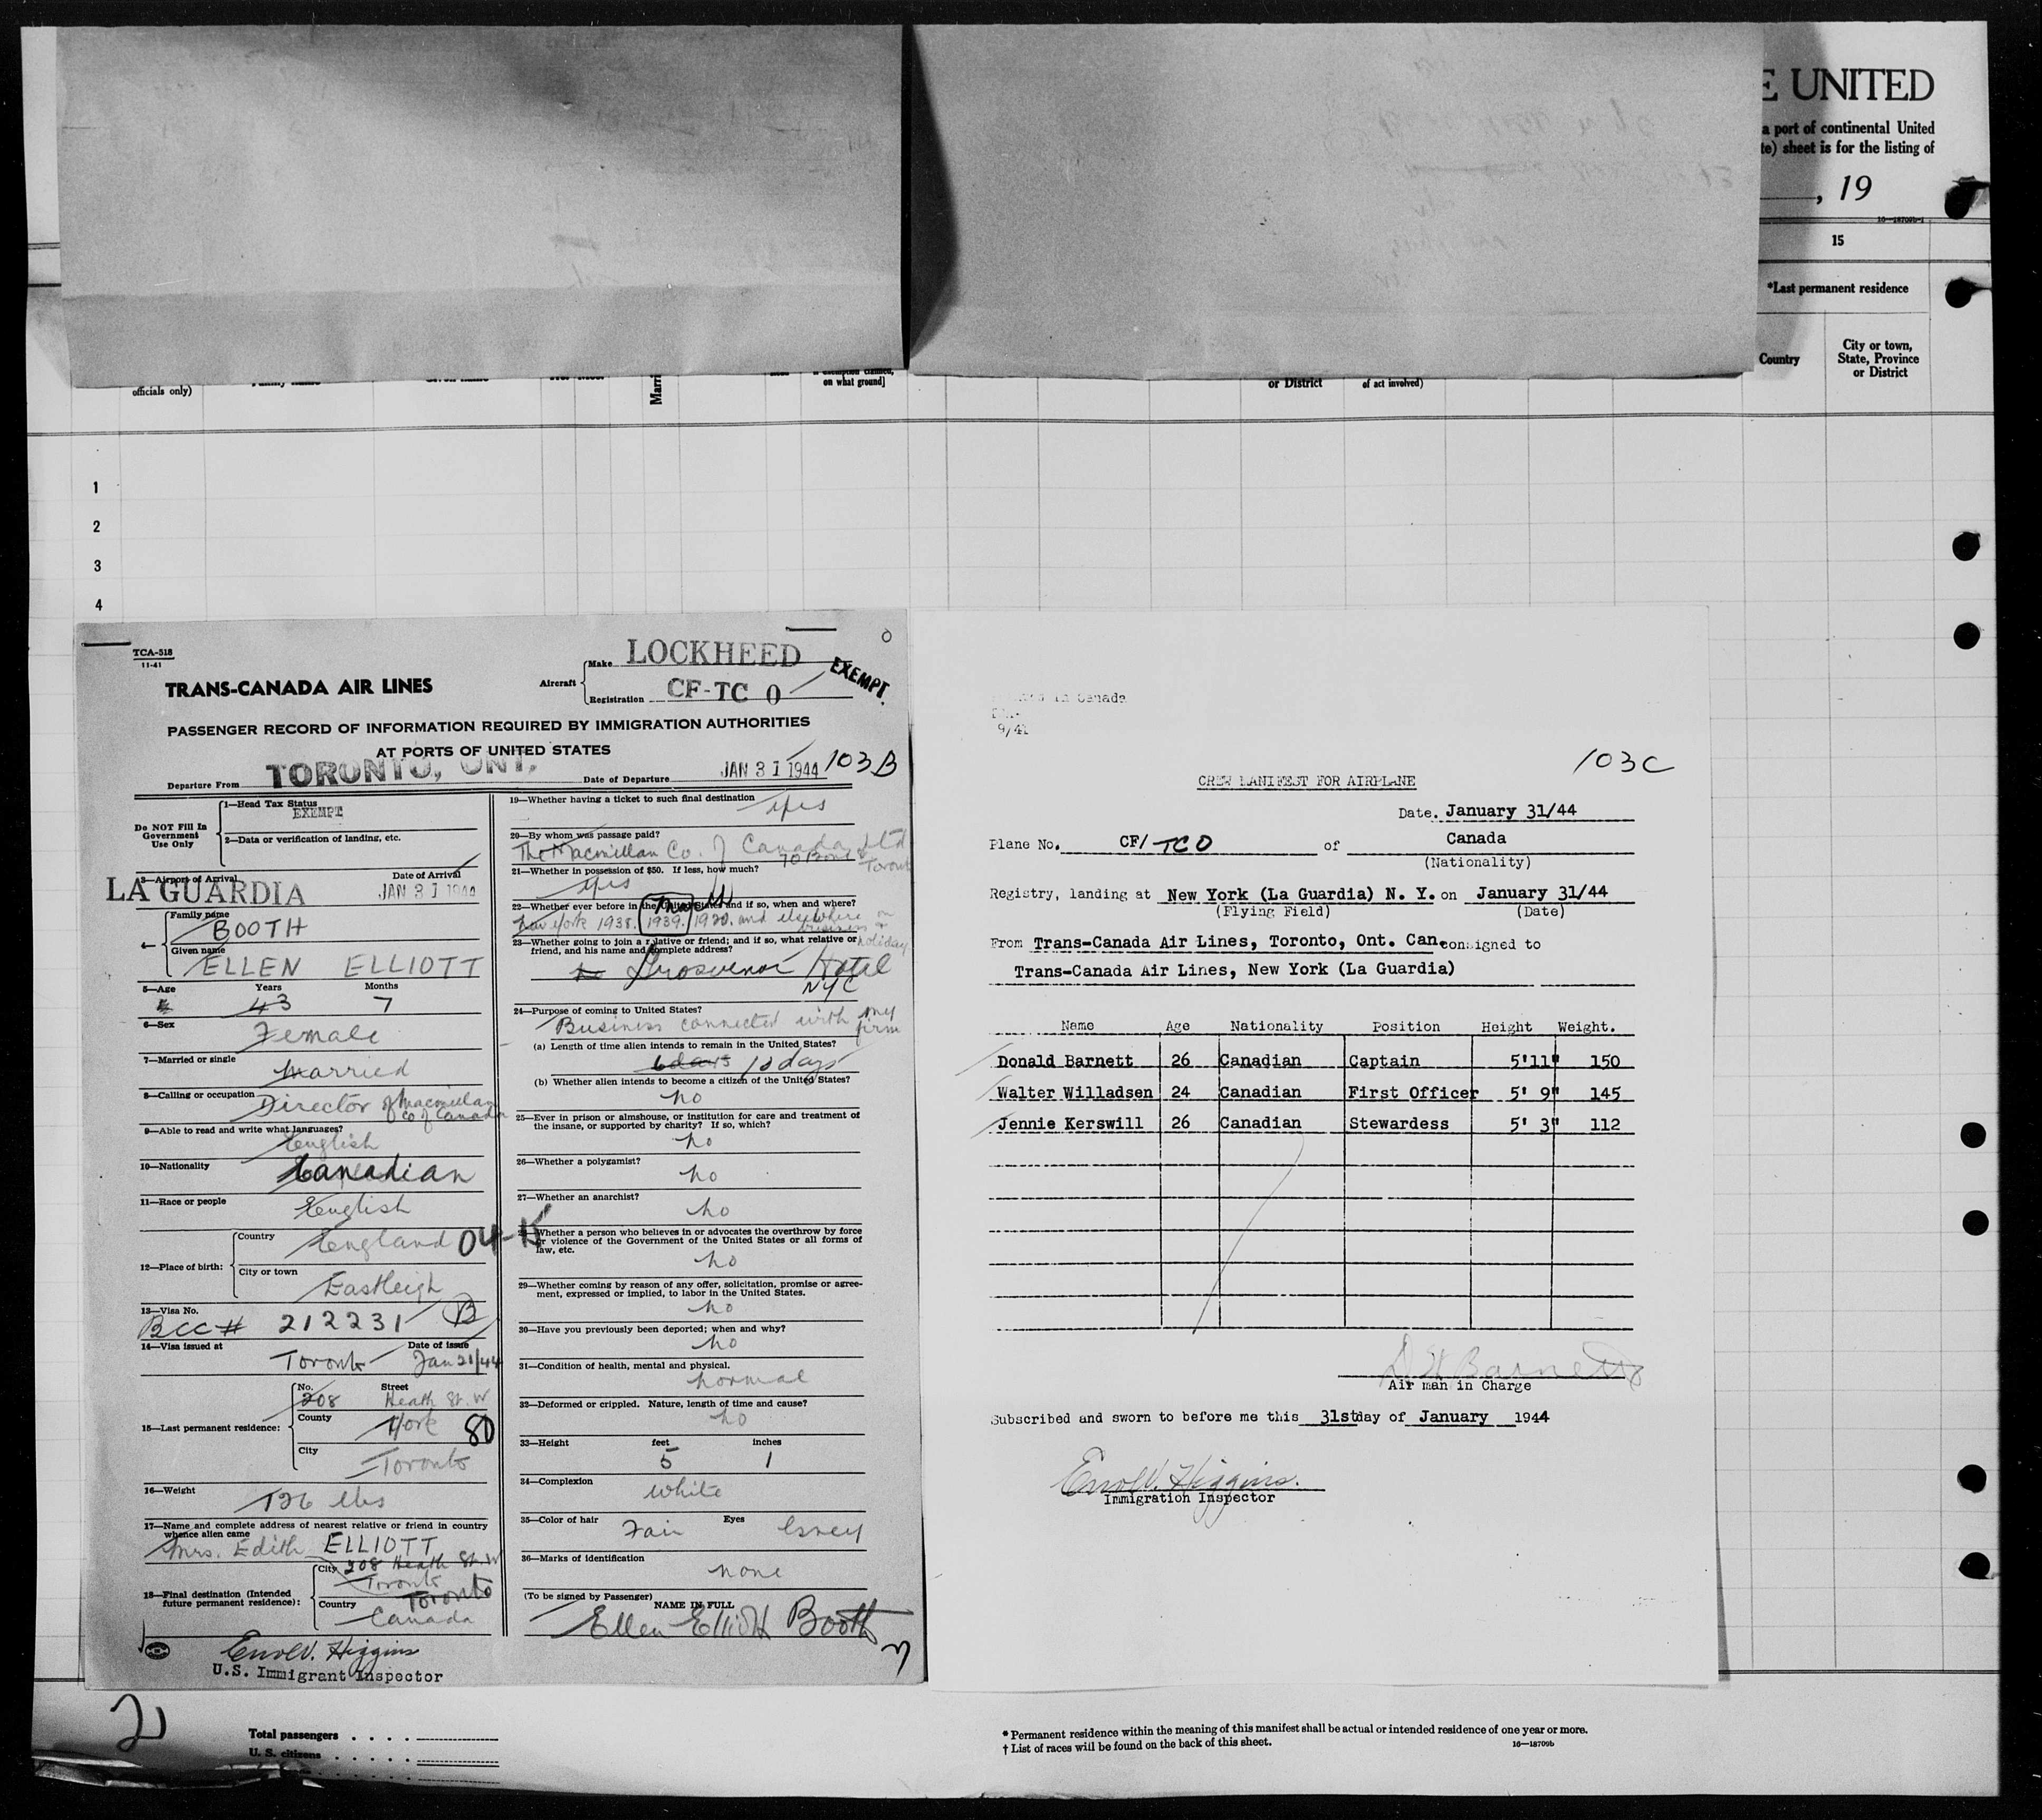 E UNITED
a port of continental United
te) sheet is for the listing of
, 19
16—18709b-1
15
*Last permanent residence
Country
City or town, State, Province or District
officials only)
on what ground]
or District
of act involved)
1
2
3
4
TCA-318
11-41
TRANS-CANADA AIR LINES
Aircraft
Make LOCKHEED
Registration CF-TC O
EXEMPT.
PASSENGER RECORD OF INFORMATION REQUIRED BY IMMIGRATION AUTHORITIES
AT PORTS OF UNITED STATES
Departure From TORONTO, ONT. Date of Departure JAN 31 1944 103B
Do NOT Fill In Government Use Only
1—Head Tax Status
EXEMPT
2—Data or verification of landing, etc.
3—Airport of Arrival Date of Arrival
LA GUARDIA JAN 31 1944
Family name
BOOTH
Given name
ELLEN ELLIOTT
5—Age Years Months
43 7
6—Sex
Female
7—Married or single
Married
8—Calling or occupation Director of Macmillan Co of Canada
9—Able to read and write what languages?
English
10—Nationality Canadian
11—Race or people English
12—Place of birth:
Country England 04-15
City or town Eastleigh
13—Visa No.
BCC# 212231 B
14—Visa issued at Date of issue
Toronto Jan 21/44
15—Last permanent residence:
No. Street
208 Heath St. W
County York 80
City
Toronto
16—Weight
126 lbs
17—Name and complete address of nearest relative or friend in country whence alien came
Mrs. Edith ELLIOTT
208 Heath St. W
Toronto
18—Final destination (Intended future permanent residence):
City Toronto
Country
Canada
Errol V. Higgins
U.S. Immigrant Inspector
19—Whether having a ticket to such final destination
yes
20—By whom was passage paid?
The Macmillan Co. of Canada Ltd
70 Bond St Toronto
21—Whether in possession of $50. If less, how much?
yes
22—Whether ever before in the United States and if so, when and where?
New York 1938. 1939. 1920. and elsewhere on business & holiday
23—Whether going to join a relative or friend; and if so, what relative or friend, and his name and complete address?
no Grosvenor Hotel
NYC
24—Purpose of coming to United States?
Business connected with my firm
(a) Length of time alien intends to remain in the United States?
6 days 10 days
(b) Whether alien intends to become a citizen of the United States?
no
25—Ever in prison or almshouse, or institution for care and treatment of the insane, or supported by charity? If so, which?
no
26—Whether a polygamist?
no
27—Whether an anarchist?
no
Whether a person who believes in or advocates the overthrow by force or violence of the Government of the United States or all forms of law, etc.
no
29—Whether coming by reason of any offer, solicitation, promise or agreement, expressed or implied, to labor in the United States.
no
30—Have you previously been deported; when and why?
no
31—Condition of health, mental and physical.
normal
32—Deformed or crippled. Nature, length of time and cause?
no
33—Height feet inches
5 1
34—Complexion
white
35—Color of hair Fair Eyes Grey
36—Marks of identification
none
(To be signed by Passenger)
NAME IN FULL
Ellen Elliott Booth
in Canada
9/41
103C
CREW MANIFEST FOR AIRPLANE
Date. January 31/44
Plane No. CF/ TCO of Canada
(Nationality)
Registry, landing at New York (La Guardia) N. Y. on January 31/44
(Flying Field) (Date)
From Trans-Canada Air Lines, Toronto, Ont. Can. consigned to
Trans-Canada Air Lines, New York (La Guardia)
Name Age Nationality Position Height Weight.
Donald Barnett 26 Canadian Captain 5'11" 150
Walter Willadsen 24 Canadian First Officer 5' 9" 145
Jennie Kerswill 26 Canadian Stewardess 5' 3" 112
Barnett
Air man in Charge
Subscribed and sworn to before me this 31st day of January 1944
Errol V. Higgins.
Immigration Inspector
21
Total passengers . . . .
U. S. citizens . . . . .
* Permanent residence within the meaning of this manifest shall be actual or intended residence of one year or more.
† List of races will be found on the back of this sheet.
16—18709b